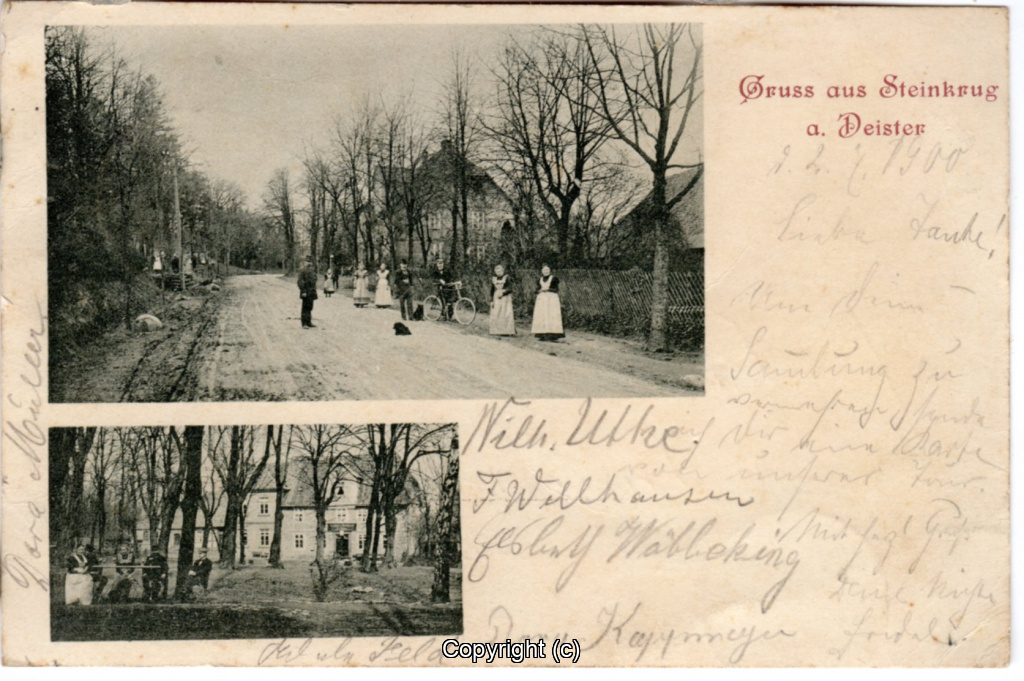 Gruss aus Steinkrug
a. Deister
d. 2. 7. 1900
Liebe Tante!
Um deine
Sammlung zu
vermehren sende
ich dir eine Karte
von unserer Tour.
Mit hzl Gruß
Deine Nichte
Wilh. Utke.
F Wellhausen
Elsbeth Wöbbeking
Dora Kappmeyer
Dora Müller
Copyright (c)